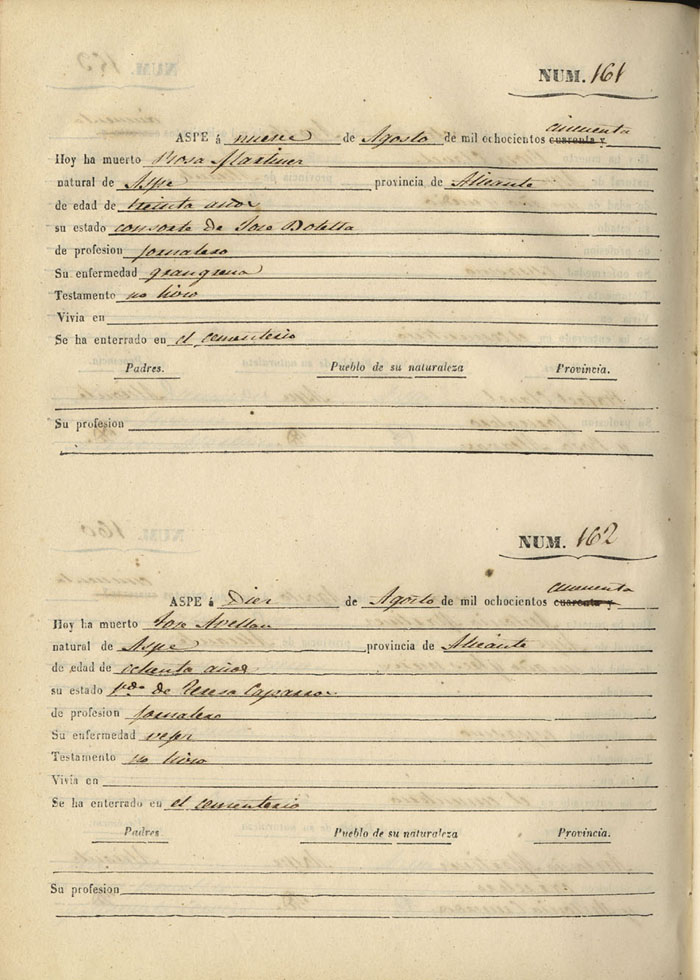 NUM. 161
cincuenta
ASPE á nueve de Agosto de mil ochocientos cuarenta y
Hoy ha muerto Rosa Martinez
natural de Aspe provincia de Alicante
de edad de treinta años
su estado consorte de Jose Botella
de profesion jornalero
Su enfermedad grangrena
Testamento no hizo
Vivía en
Se ha enterrado en el cementerio
Padres. Pueblo de su naturaleza Provincia.
Su profesion
NUM. 162
cincuenta
ASPE á Diez de Agosto de mil ochocientos cuarenta y
Hoy ha muerto Jose Avellan
natural de Aspe provincia de Alicante
de edad de ochenta años
su estado vdo de Teresa Caparros
de profesion jornalero
Su enfermedad vejez
Testamento no hizo
Vivía en
Se ha enterrado en el cementerio
Padres Pueblo de su naturaleza Provincia.
Su profesion